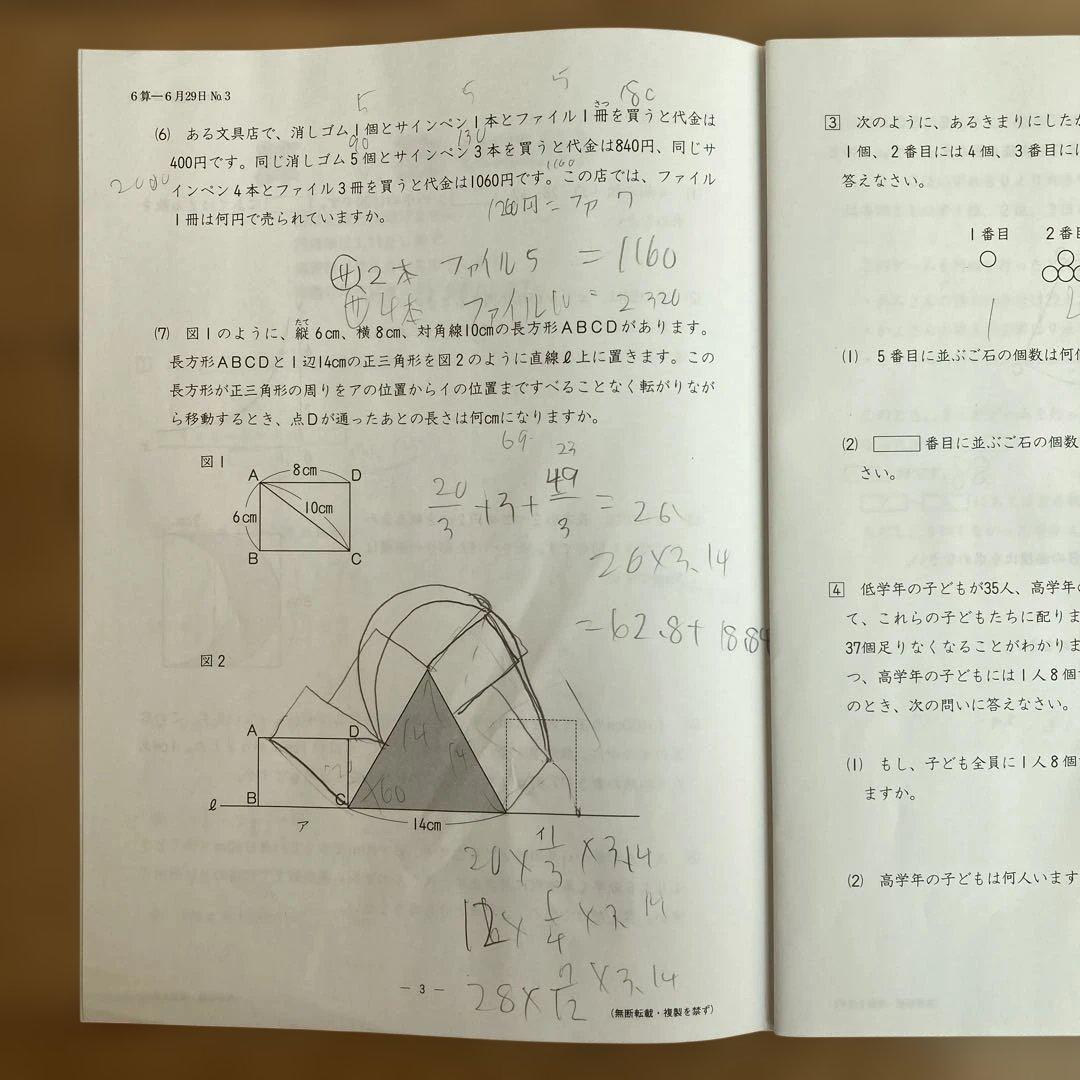 6算—6月29日 No.3
5 5 5 180
(6) ある文具店で、消しゴム1個とサインペン1本とファイル1冊を買うと代金は
さつ
90 130
400円です。同じ消しゴム5個とサインペン3本を買うと代金は840円、同じサ
2000 1160
インペン4本とファイル3冊を買うと代金は1060円です。この店では、ファイル
1260円=ファ7
1冊は何円で売られていますか。
サ2本 ファイル5 =1160
サ4本 ファイル10=2320
(7) 図1のように、縦6cm、横8cm、対角線10cmの長方形ABCDがあります。
たて
長方形ABCDと1辺14cmの正三角形を図2のように直線ℓ上に置きます。この
長方形が正三角形の周りをアの位置からイの位置まですべることなく転がりなが
ら移動するとき、点Dが通ったあとの長さは何cmになりますか。
69
23
図1
A 8cm D
6cm 10cm
B C
20/3+3+49/3=26
26×3.14
=62.8+18.84
図2
A D
14 14
×60
ℓ B C
14cm
ア イ
20×1/3×3.14
12×1/4×3.14
28×7/12×3.14
— 3 —
(無断転載・複製を禁ず)
3 次のように、あるきまりにした
1個、2番目には4個、3番目に
答えなさい。
1番目 2番
1
(1) 5番目に並ぶご石の個数は何
(2) 番目に並ぶご石の個数
さい。
4 低学年の子どもが35人、高学年
て、これらの子どもたちに配りま
37個足りなくなることがわかりま
つ、高学年の子どもには1人8個
のとき、次の問いに答えなさい。
(1) もし、子ども全員に1人8個
ますか。
(2) 高学年の子どもは何人います